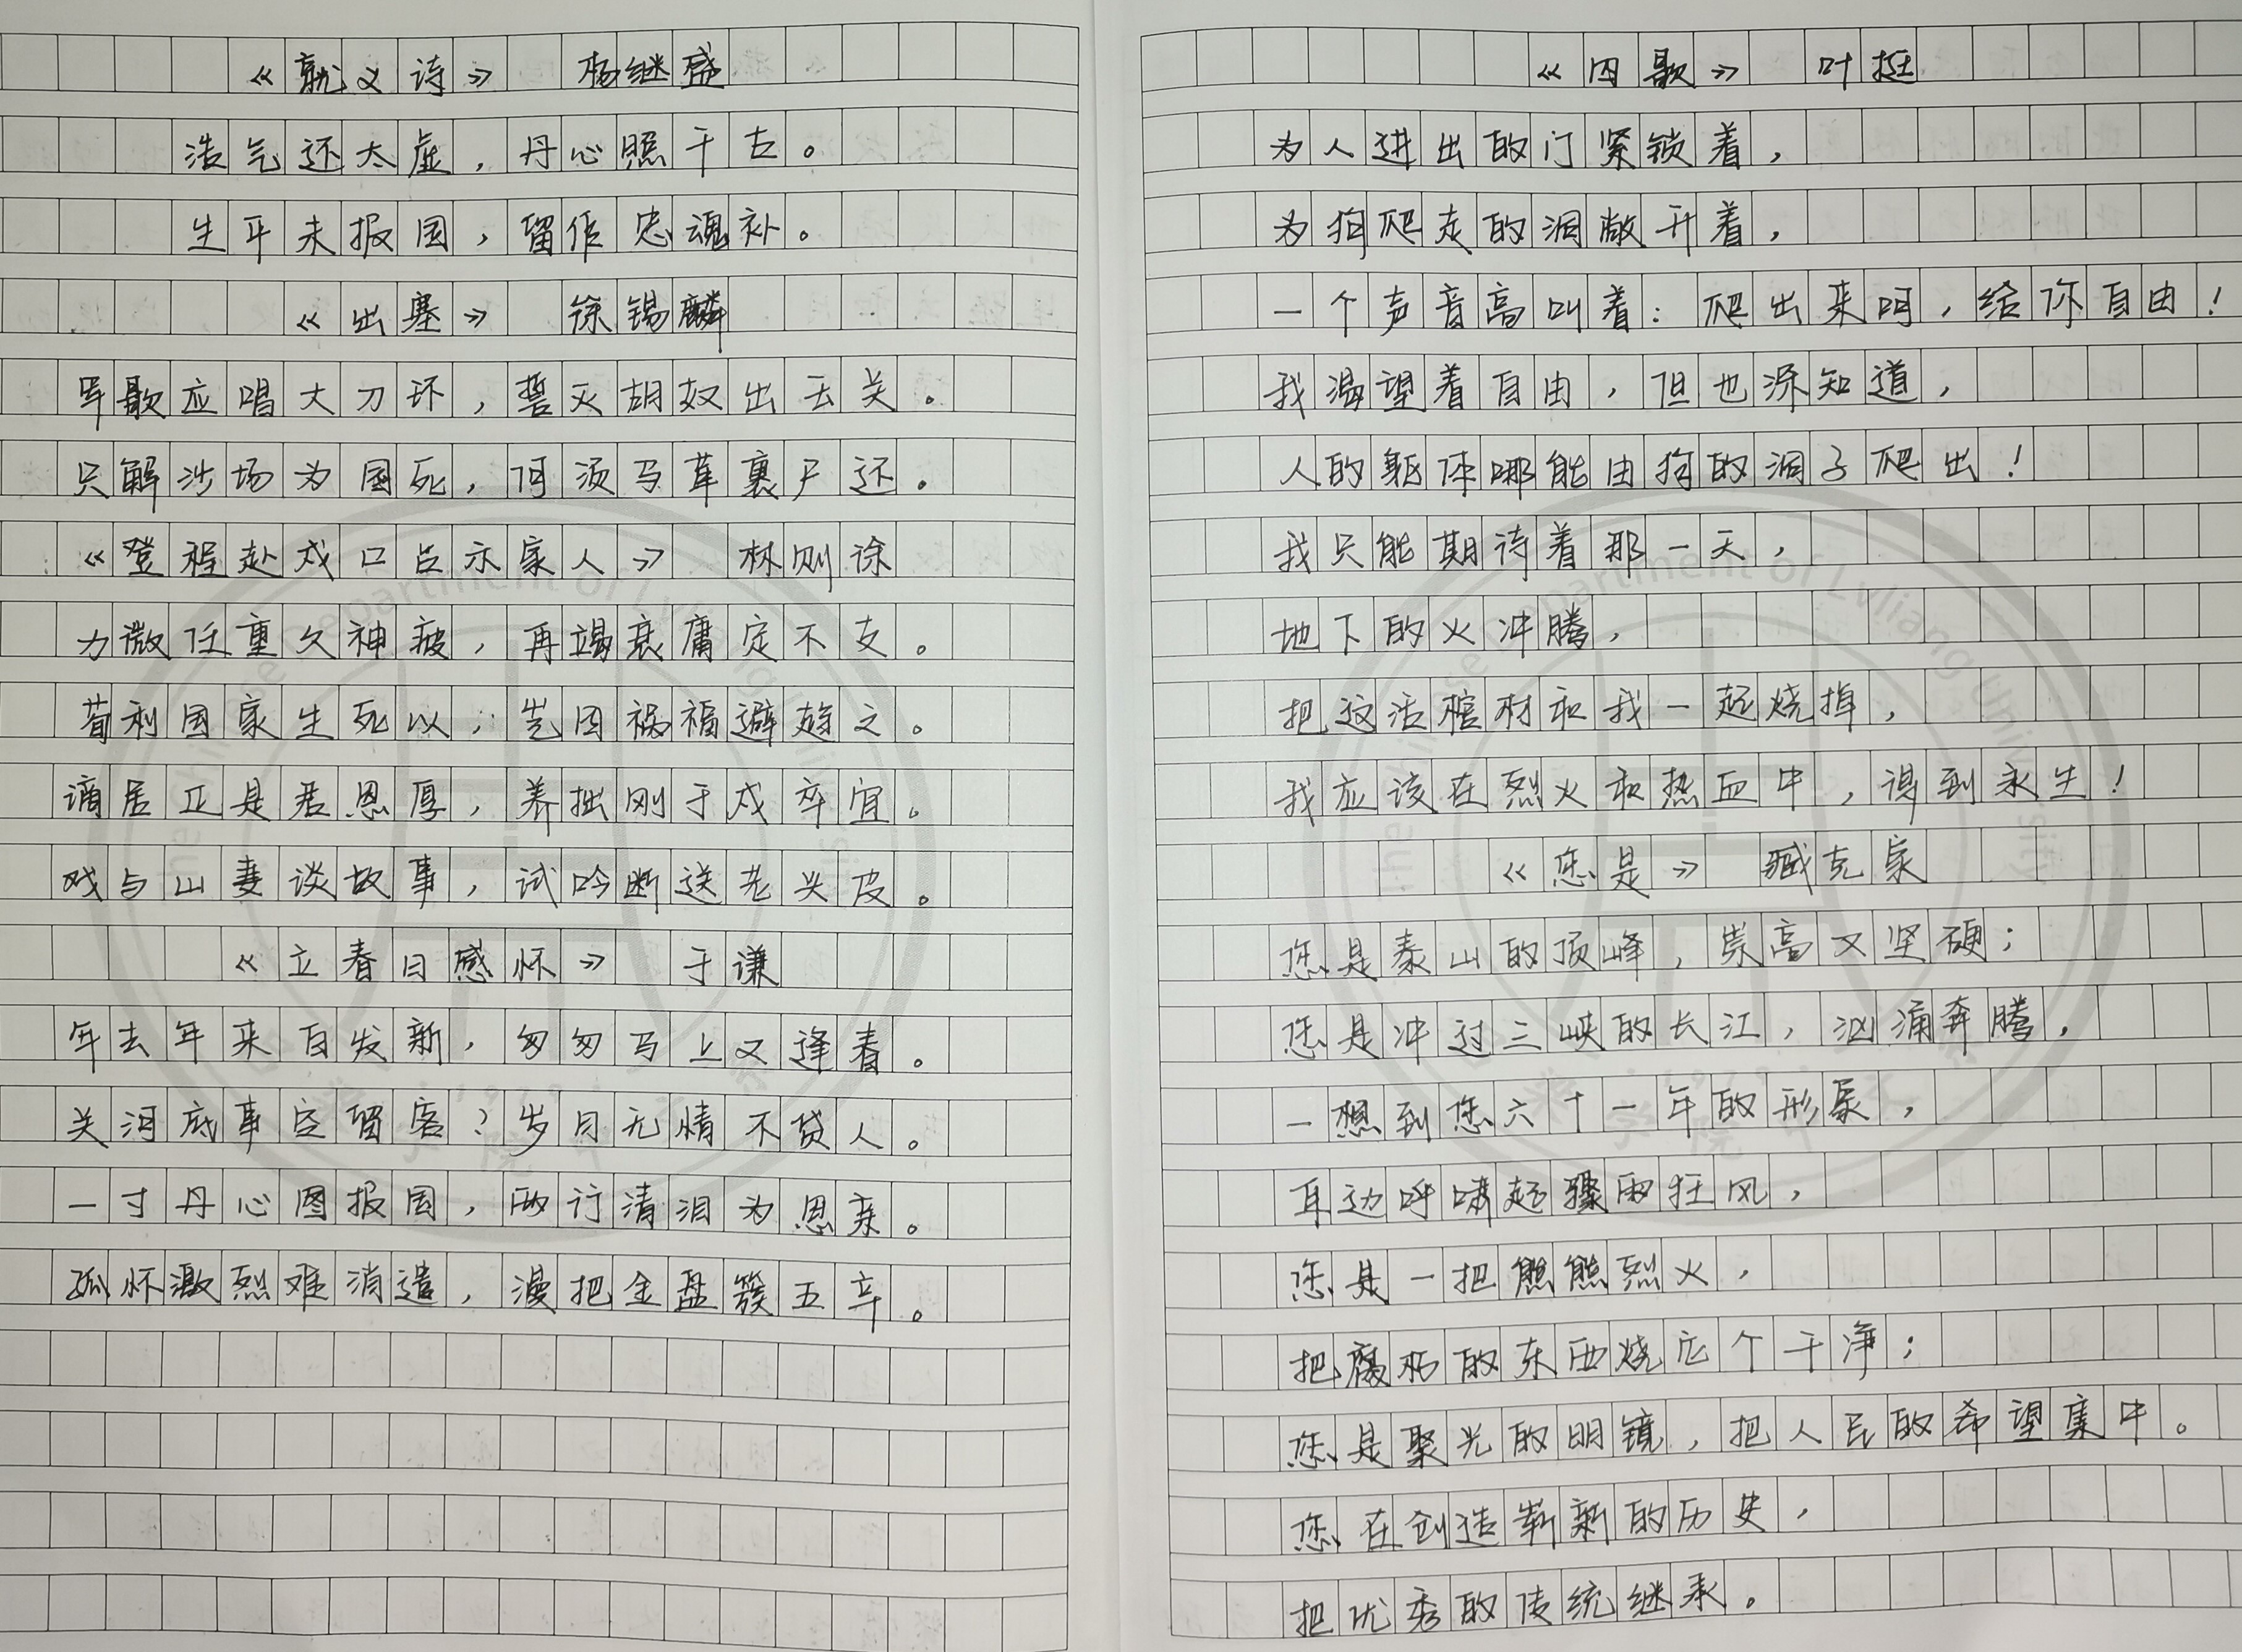 《就义诗》 杨继盛
浩气还太虚，丹心照千古。
生平未报国，留作忠魂补。
《出塞》 徐锡麟
军歌应唱大刀环，誓灭胡奴出玉关。
只解沙场为国死，何须马革裹尸还。
《登程赴戍口占示家人》 林则徐
力微任重久神疲，再竭衰庸定不支。
苟利国家生死以，岂因祸福避趋之。
谪居正是君恩厚，养拙刚于戍卒宜。
戏与山妻谈故事，试吟断送老头皮。
《立春日感怀》 于谦
年去年来白发新，匆匆马上又逢春。
关河底事空留客？岁月无情不贷人。
一寸丹心图报国，两行清泪为思亲。
孤怀激烈难消遣，漫把金盘簇五辛。
《囚歌》 叶挺
为人进出的门紧锁着，
为狗爬走的洞敞开着，
一个声音高叫着：爬出来呵，给你自由！
我渴望着自由，但也深知道，
人的躯体哪能由狗的洞子爬出！
我只能期待着那一天，
地下的火冲腾，
把这活棺材和我一起烧掉，
我应该在烈火和热血中，得到永生！
《您是》 臧克家
您是泰山的顶峰，崇高又坚硬；
您是冲过三峡的长江，汹涌奔腾，
一想到您六十一年的形象，
耳边呼啸起骤雨狂风，
您是一把熊熊烈火，
把腐朽的东西烧它个干净；
您是聚光的明镜，把人民的希望集中。
您在创造崭新的历史，
把优秀的传统继承。